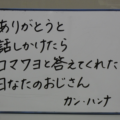 ありがとうと
話しかけたら
コマワヨと答えてくれた
日なたのおじさん
カン・ハンナ